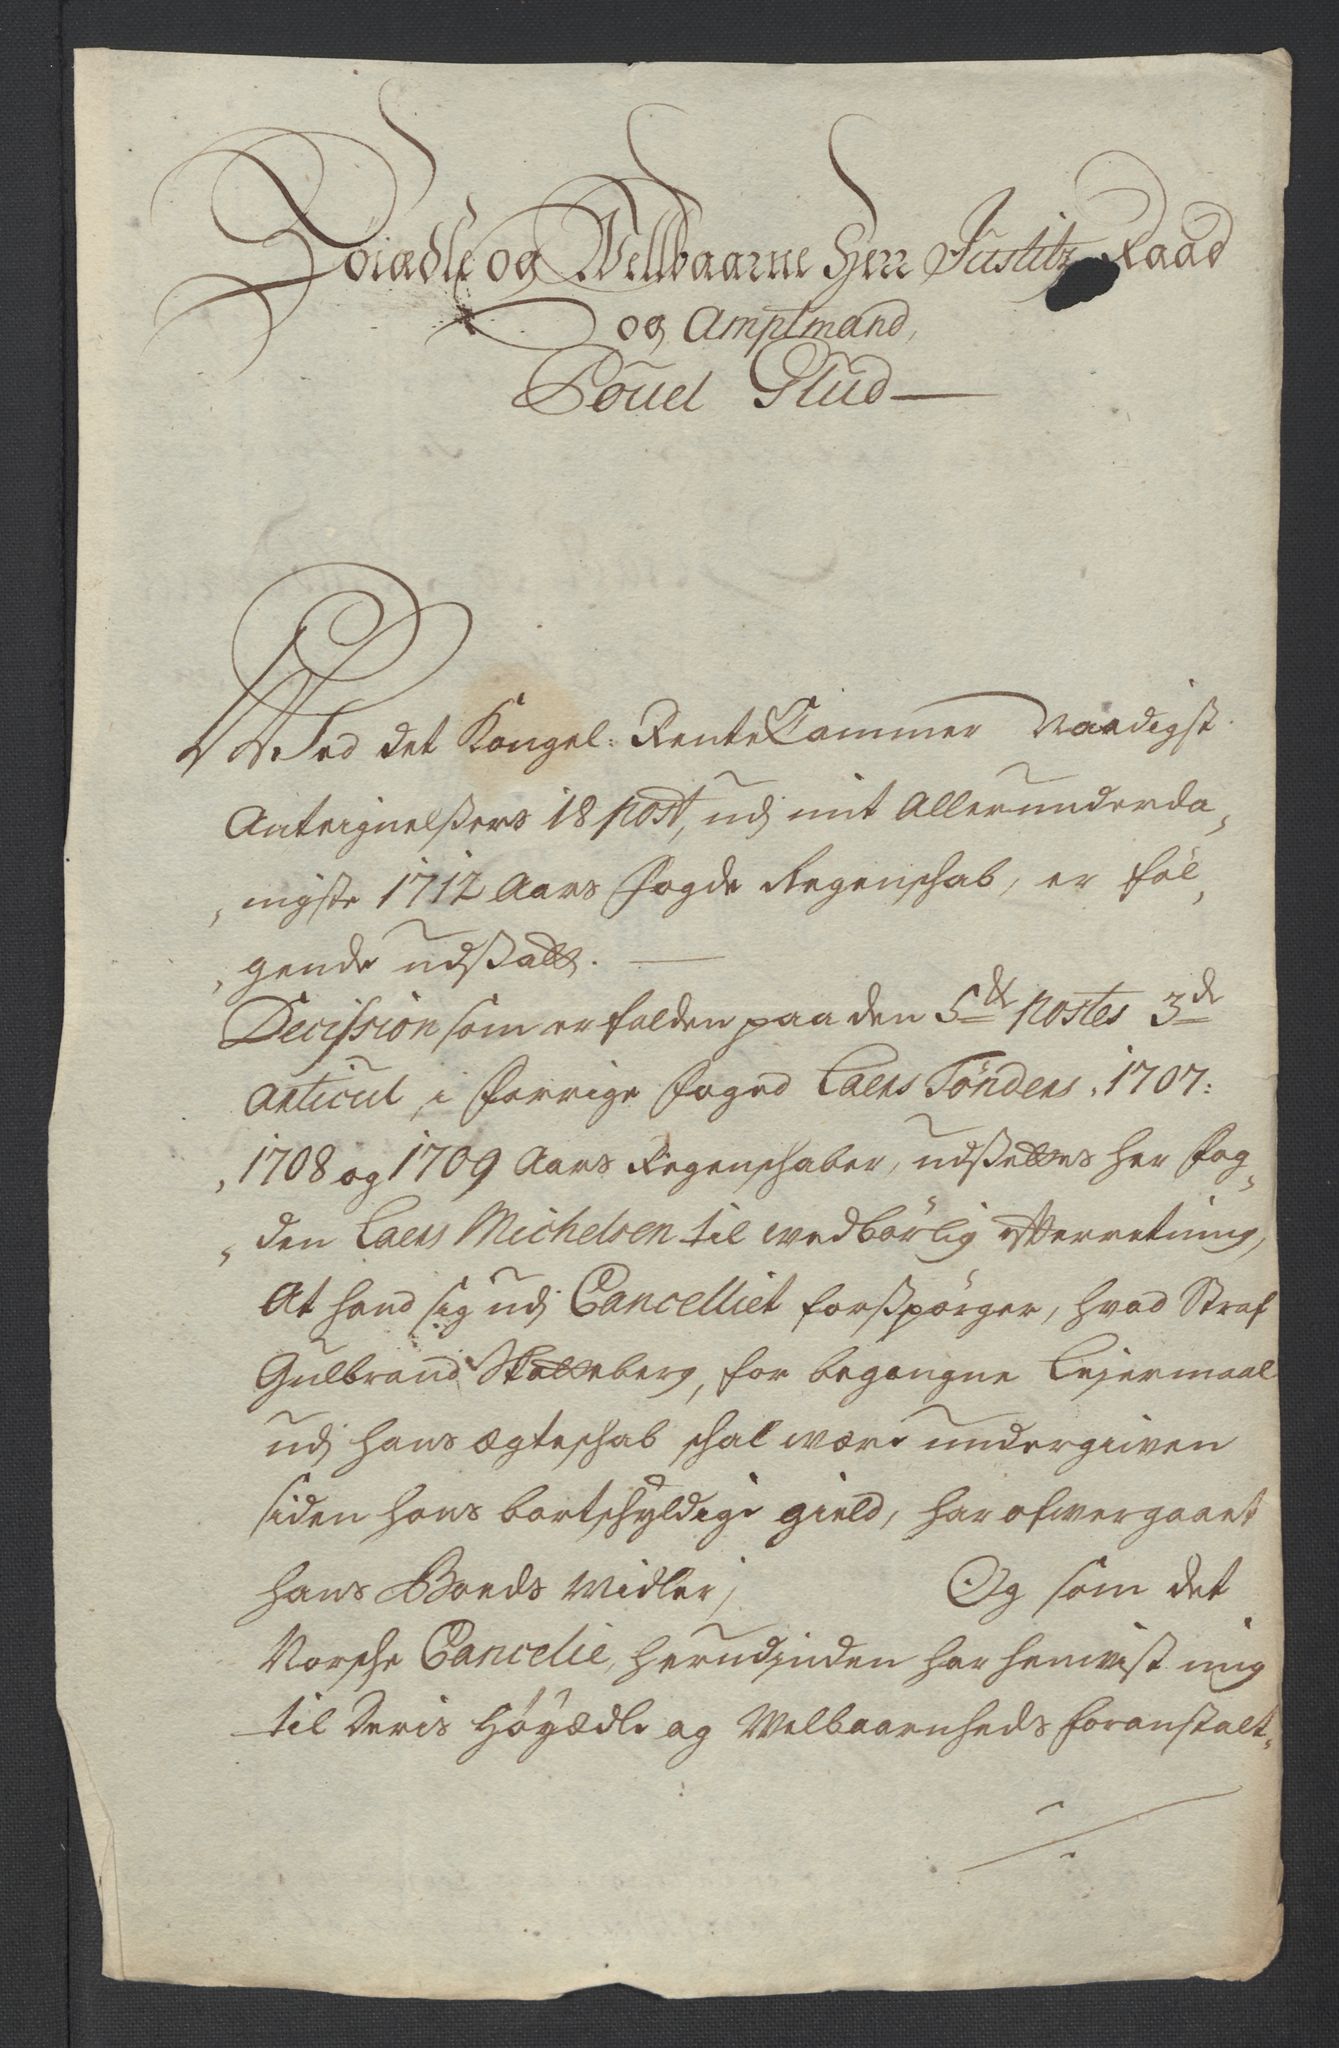 Høiædle og Wellbaarne Herr Justitz Raad
og Amptmand,
Pouel Glud
Ved det Kongel: RenteCammer Naadigst
Anteignelßers 18 Post, udj mit Allerunderda¸
¸nigste 1712 Aars fogde Regenschab, er føl¸
¸gende udßatt.
Decission som er falden paa den 5te Postes 3de
Articul, i forrige foged Laers Tønders. 1707:
¸1708 og 1709 Aars Regenschaber, udßettes her fog¸
¸den Laers Michelsen til wedbørlig efterretning,
At hand sig udj Cancelliet forßpørger, hvad Straf
Gulbrand Skatteberg, for begangne Lejermaal
udj hans ægteschab schal være undergiven
siden hans bortschyldige gield, har ofwergaaet
hans Boeds Midler; Og som det
Norsche Cancelie, herudjnden har henvist mig
til Deris Høyædle og Welbaarenheds foranstalt¸